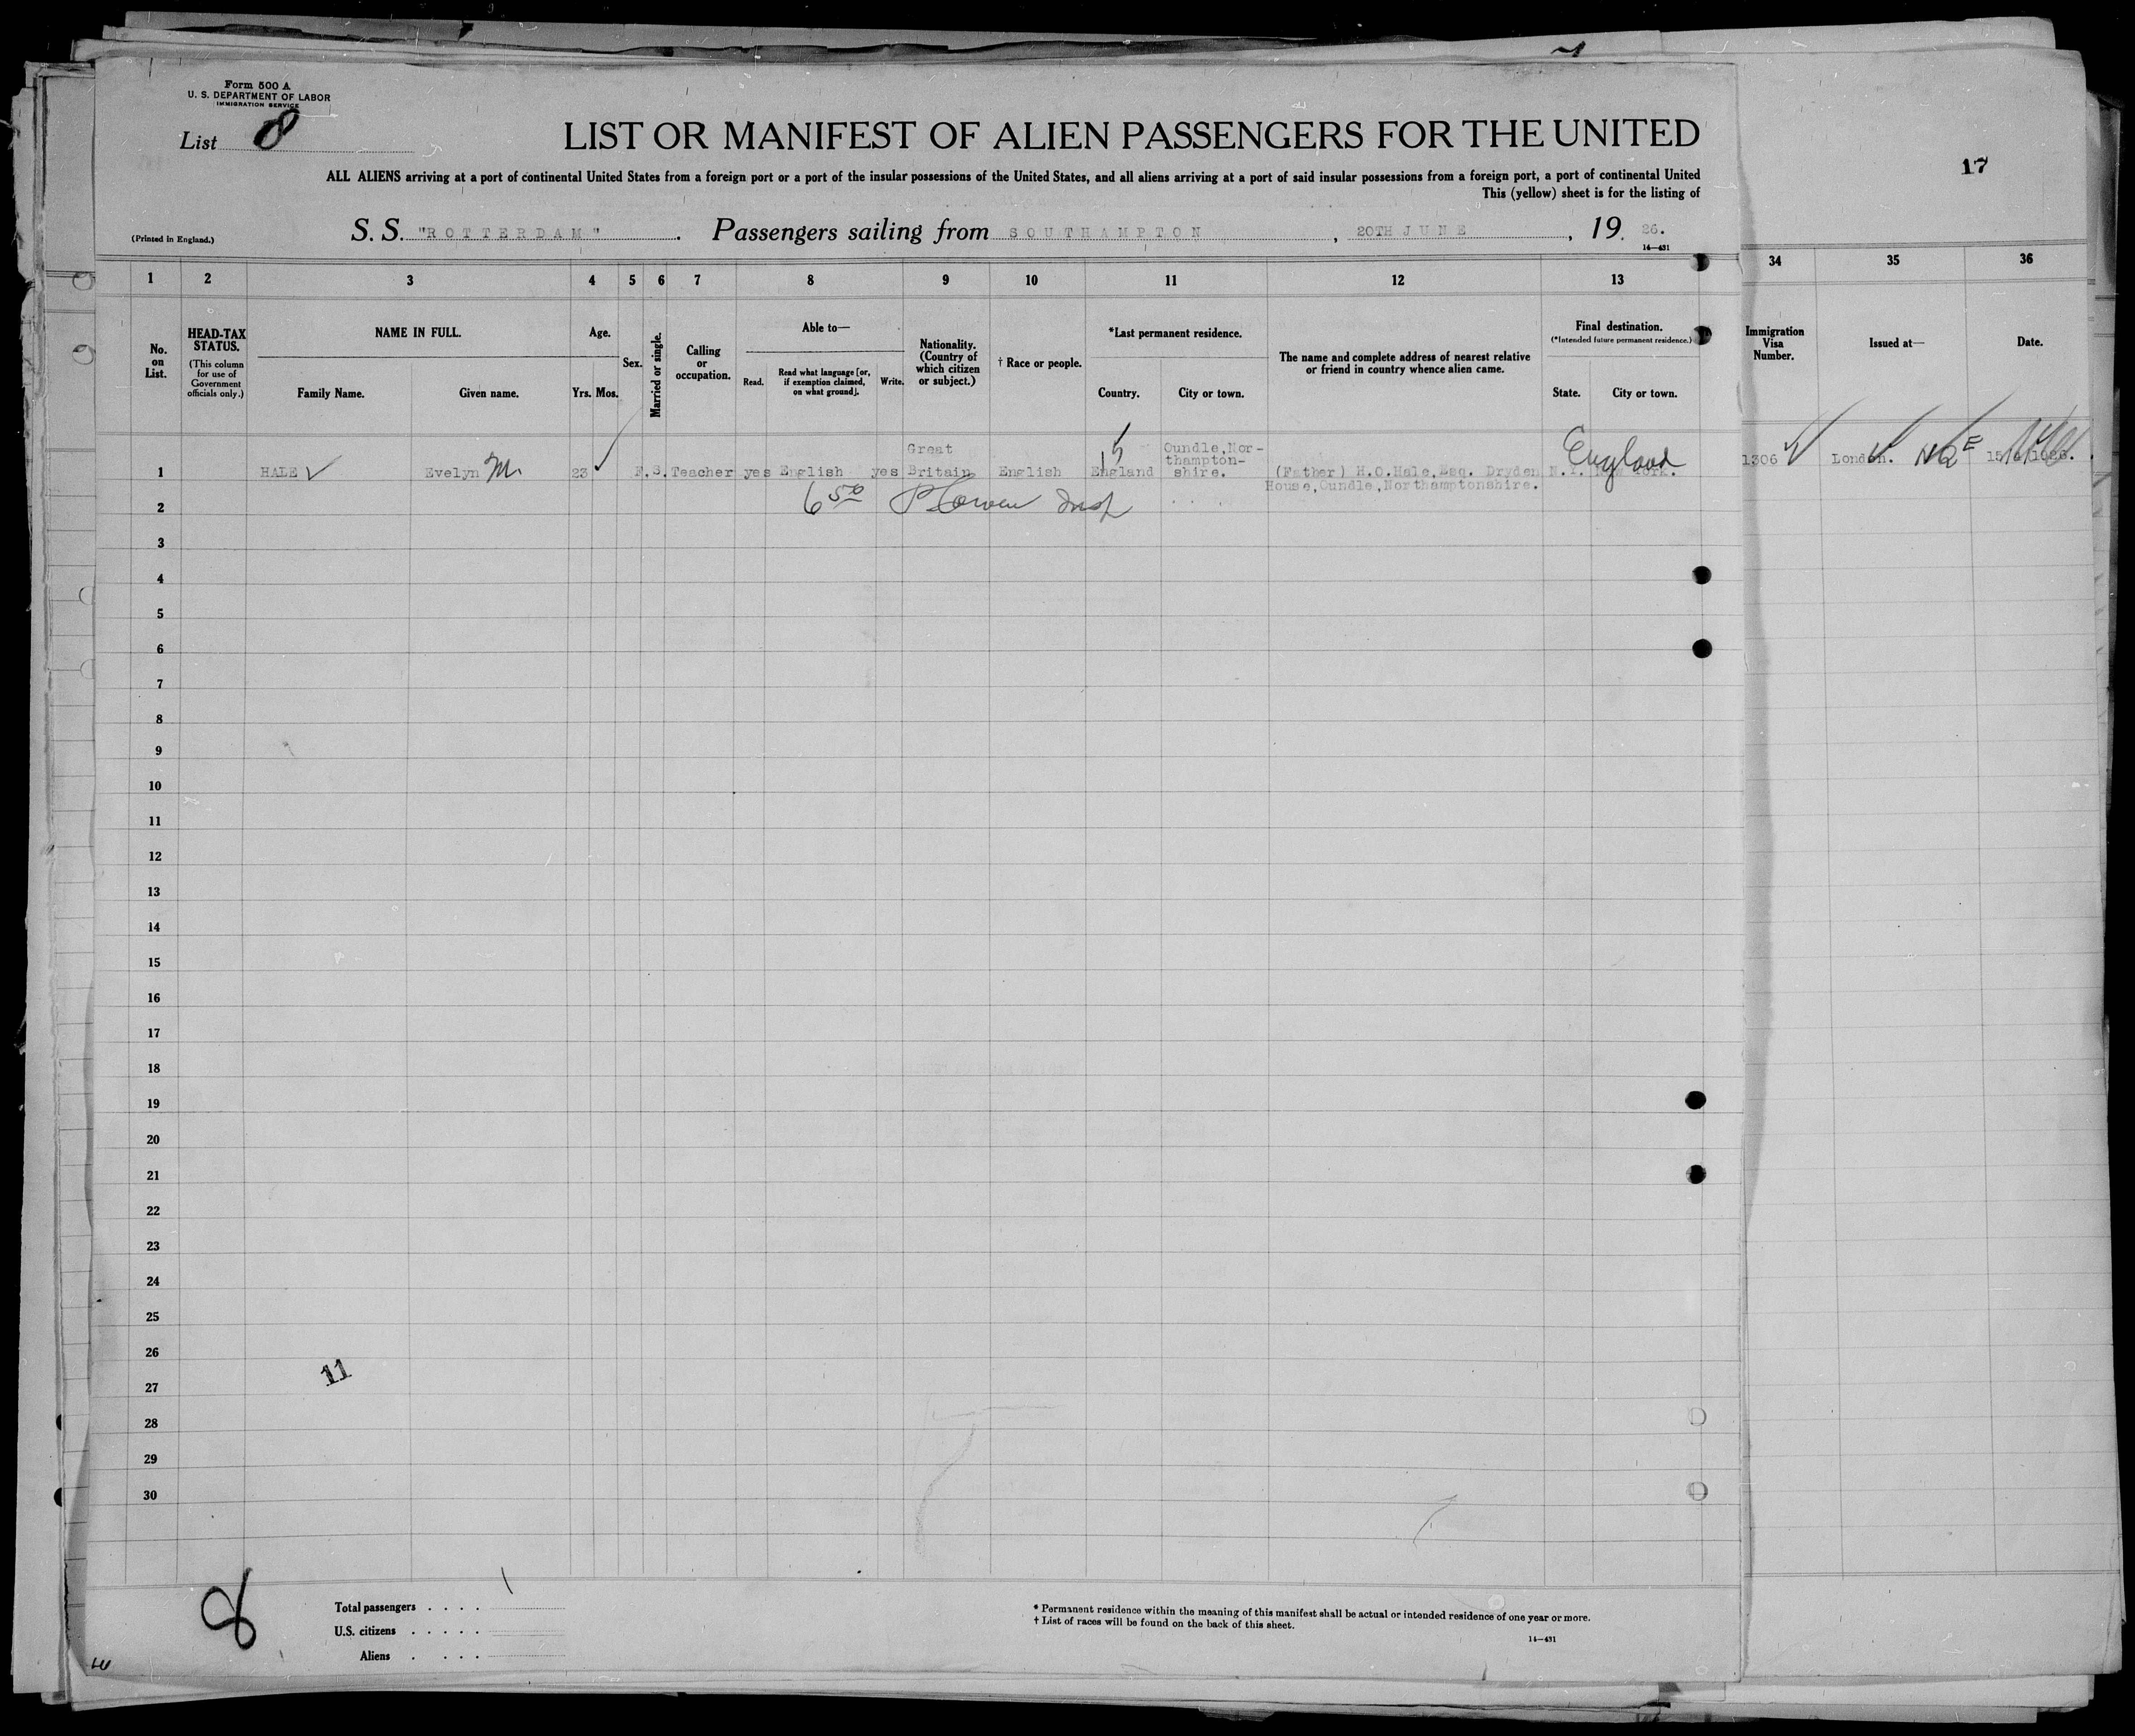 Form 500 A
U. S. DEPARTMENT OF LABOR
IMMIGRATION SERVICE
List 8
LIST OR MANIFEST OF ALIEN PASSENGERS FOR THE UNITED
17
ALL ALIENS arriving at a port of continental United States from a foreign port or a port of the insular possessions of the United States, and all aliens arriving at a port of said insular possessions from a foreign port, a port of continental United
This (yellow) sheet is for the listing of
(Printed in England.)
S. S. "ROTTERDAM". Passengers sailing from SOUTHAMPTON, 20TH JUNE, 19.26.
14—431
1 2 3 4 5 6 7 8 9 10 11 12 13 34 35 36
No. on List.
HEAD-TAX STATUS.
(This column for use of Government officials only.)
NAME IN FULL.
Family Name. Given name.
Age.
Yrs. Mos.
Sex.
Married or single.
Calling or occupation.
Able to—
Read. Read what language [or, if exemption claimed, on what ground]. Write.
Nationality. (Country of which citizen or subject.)
† Race or people.
*Last permanent residence.
Country. City or town.
The name and complete address of nearest relative or friend in country whence alien came.
Final destination.
(*Intended future permanent residence.)
State. City or town.
Immigration Visa Number.
Issued at—
Date.
1 HALE Evelyn M. 23 F. S. Teacher yes English yes Great Britain English England Oundle, Northampton-shire. (Father) H.O.Hale, Esq. Dryden House, Oundle, Northamptonshire. N.Y. New York. England 1306 London. NQE
6 50 Insp
2
3
4
5
6
7
8
9
10
11
12
13
14
15
16
17
18
19
20
21
22
23
24
25
26
11
27
28
29
30
8
Total passengers . . . .
U.S. citizens . . . . .
Aliens . . . .
* Permanent residence within the meaning of this manifest shall be actual or intended residence of one year or more.
† List of races will be found on the back of this sheet.
14—431